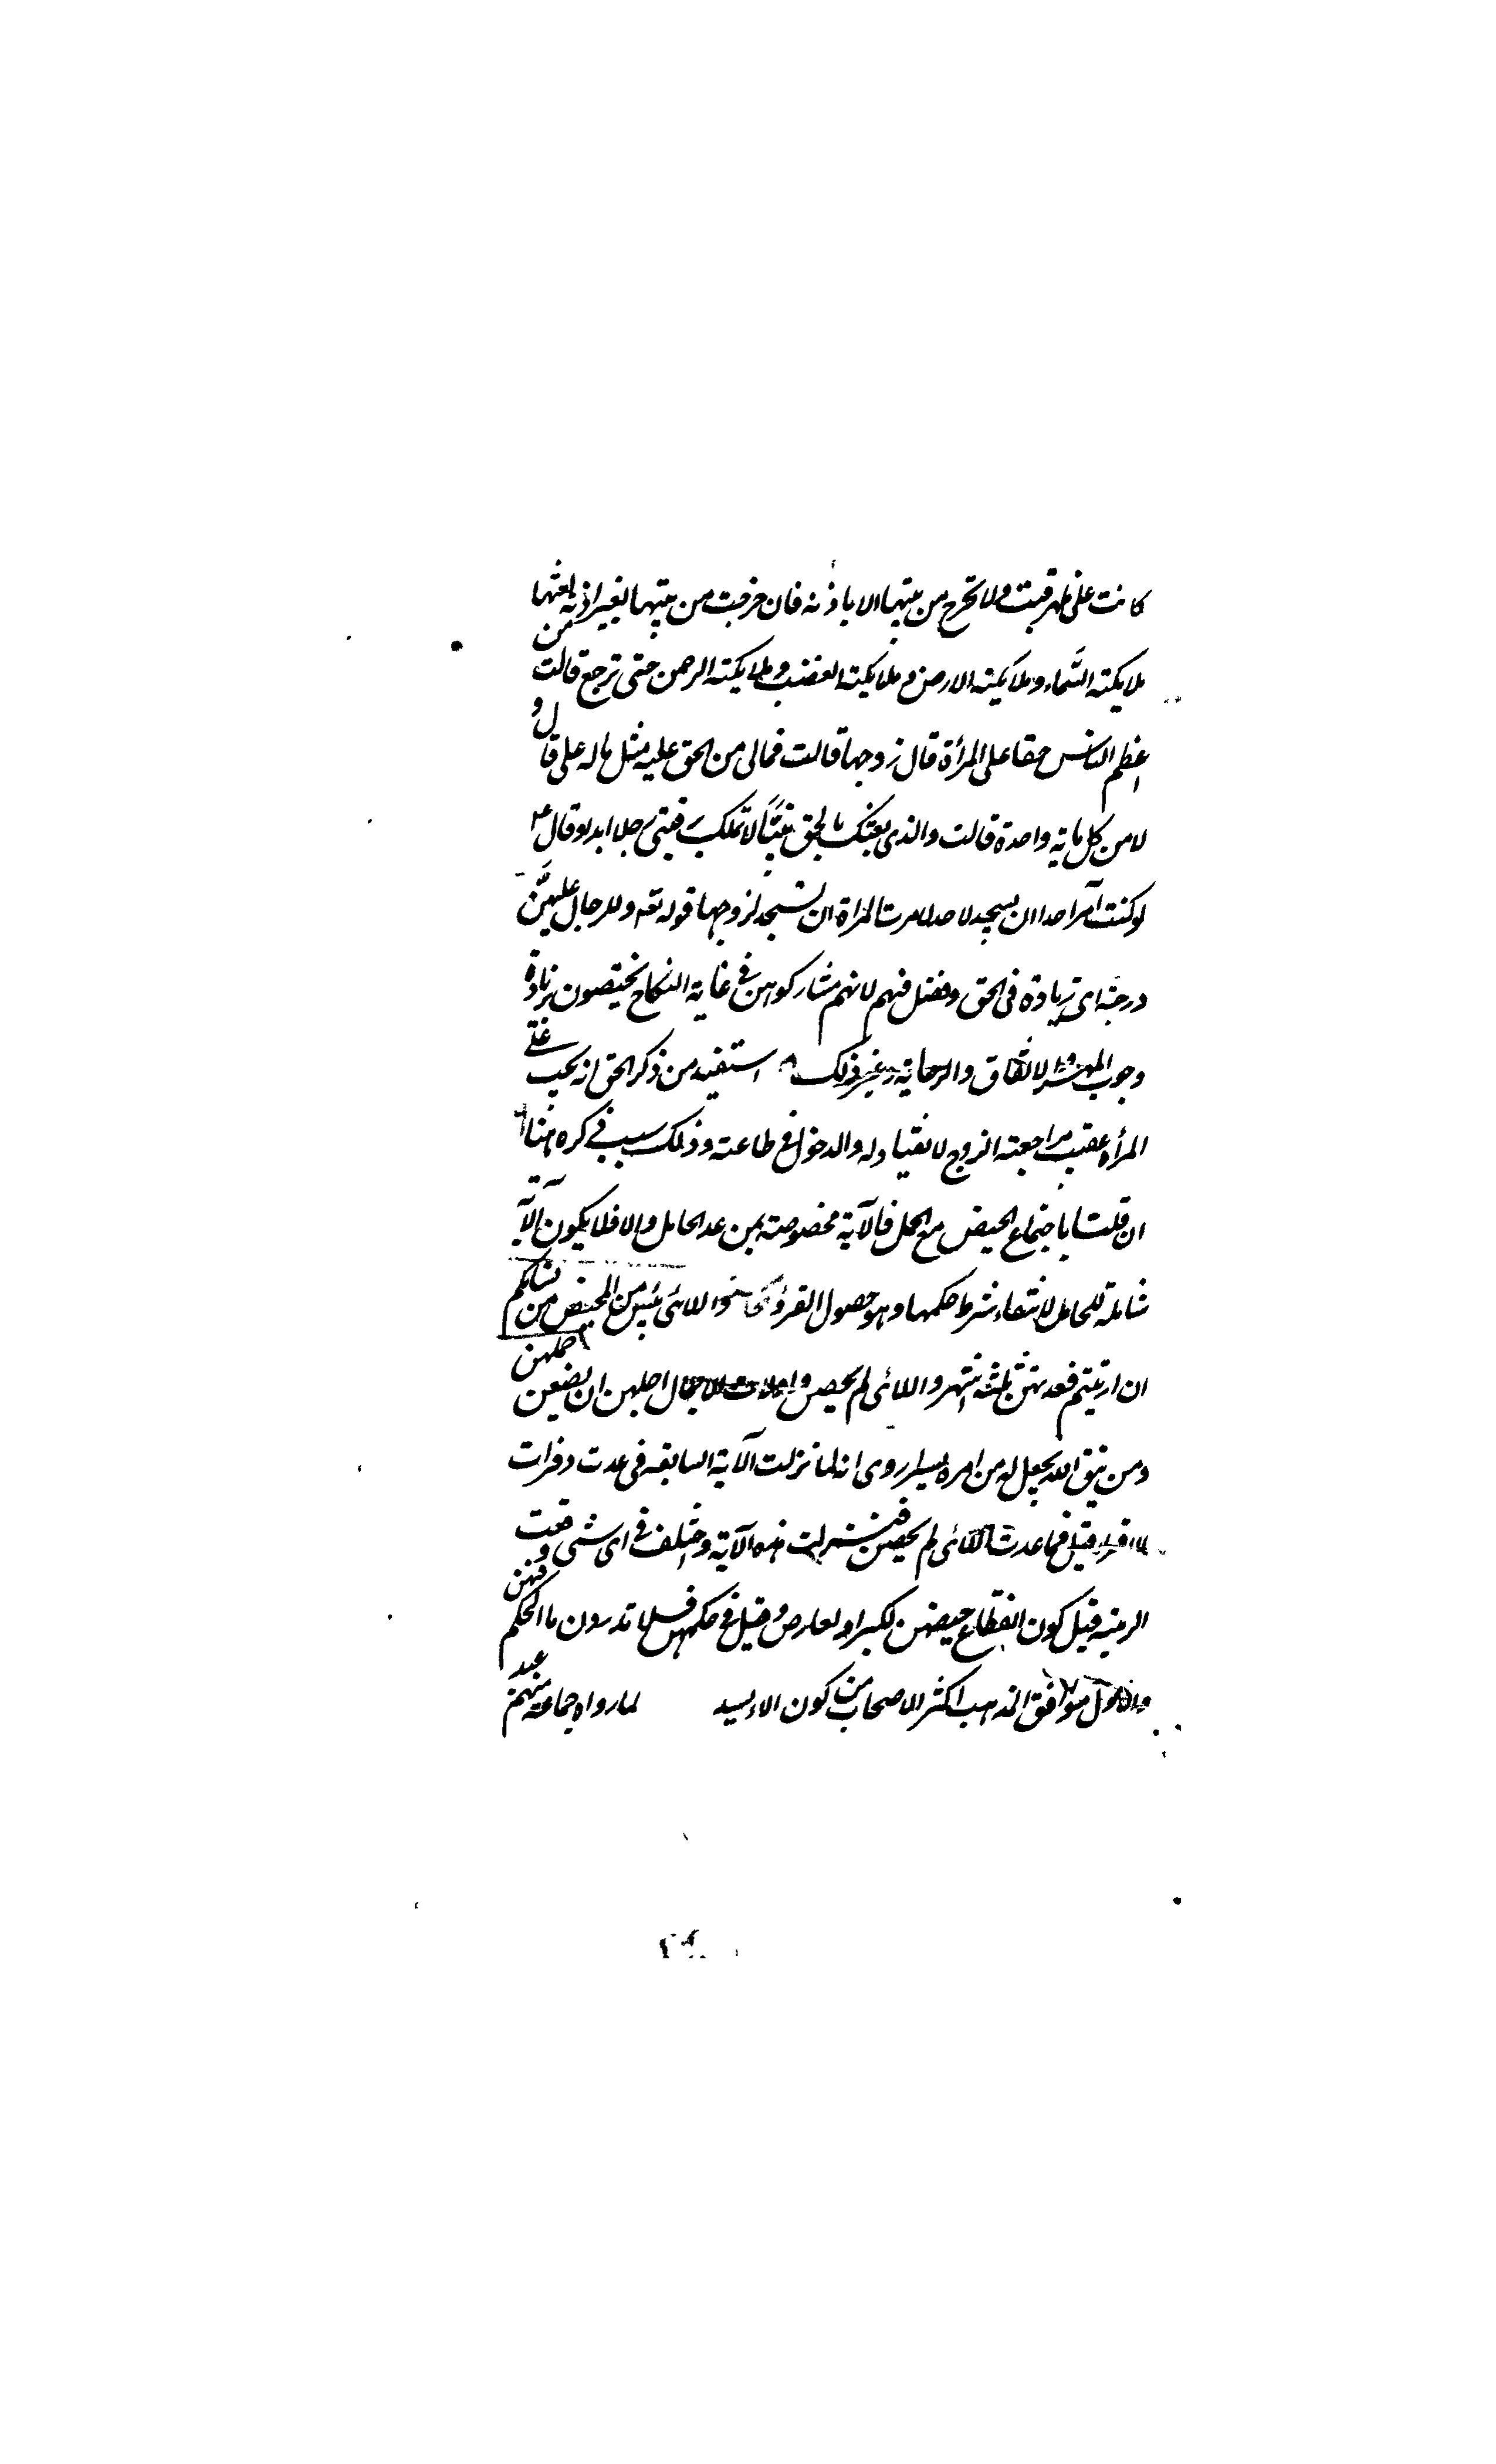 كانت على ظهر قتب ولا تخرج من بيتها الا باذنه فان خرجت من بيتها بغير اذنه لعنتها
ملايكة السماء وملايكة الارض وملايكة الغضب وملايكة الرحمن حتى ترجع قالت من
اعظم الناس حقا على المرأة قال زوجها قالت فمالى من الحق عليه مثل ماله على قال و
لا من كل ماية واحدة قالت والذى بعثك بالحق نبيّاً لا تملك رقبتى رجلا ابدا وقال ع
لو كنت آمر احدا ان يسجد لاحد لامرت المراة ان تسجد لزوجها قوله تعه وللرجال عليهنّ
درجة اى زيادة فى الحق وفضل فيهم لانهم شاركوهن فى غاية النكاح يختصون بزيادة
وجوب المهر والانفاق والرعاية وغير ذلك استفيد من ذكر الحق انه يجب على
المرأة عقيب مراجعة الزوج الانقياد له والدخول فى طاعته وذلك سبب فى كره هنا
ان قلت باجتماع الحيض مع الحمل فالآية مخصوصة بمن عد الحامل والا فلا يكون الآية
شاملة للحامل لانتفاء شرط حكمها وهو حصول القرؤ واللائى يئسن من المحيض من نسايكم
ان ارتبتم فعدتهن ثلثة اشهر واللائى لم يحضن واولات الاحمال اجلهن ان يضعن حملهن
ومن يتق الله يجعل له من امره يسرا روى انه لما نزلت الآية السابقة فى عدت ذوات
الاقراء قيل فما عدت اللائى لم يحضن فنزلت هذه الآية واختلف فى اى شى وقعت
الريبة فقيل كون انقطاع حيضهن لكبر او لعارض وقيل فى حكمهن فلا تدرون ما الحكم فيهن
والاول موافق لمذهب اكثر الاصحاب من كون الايسة لما رواه جماعة منهم عبد